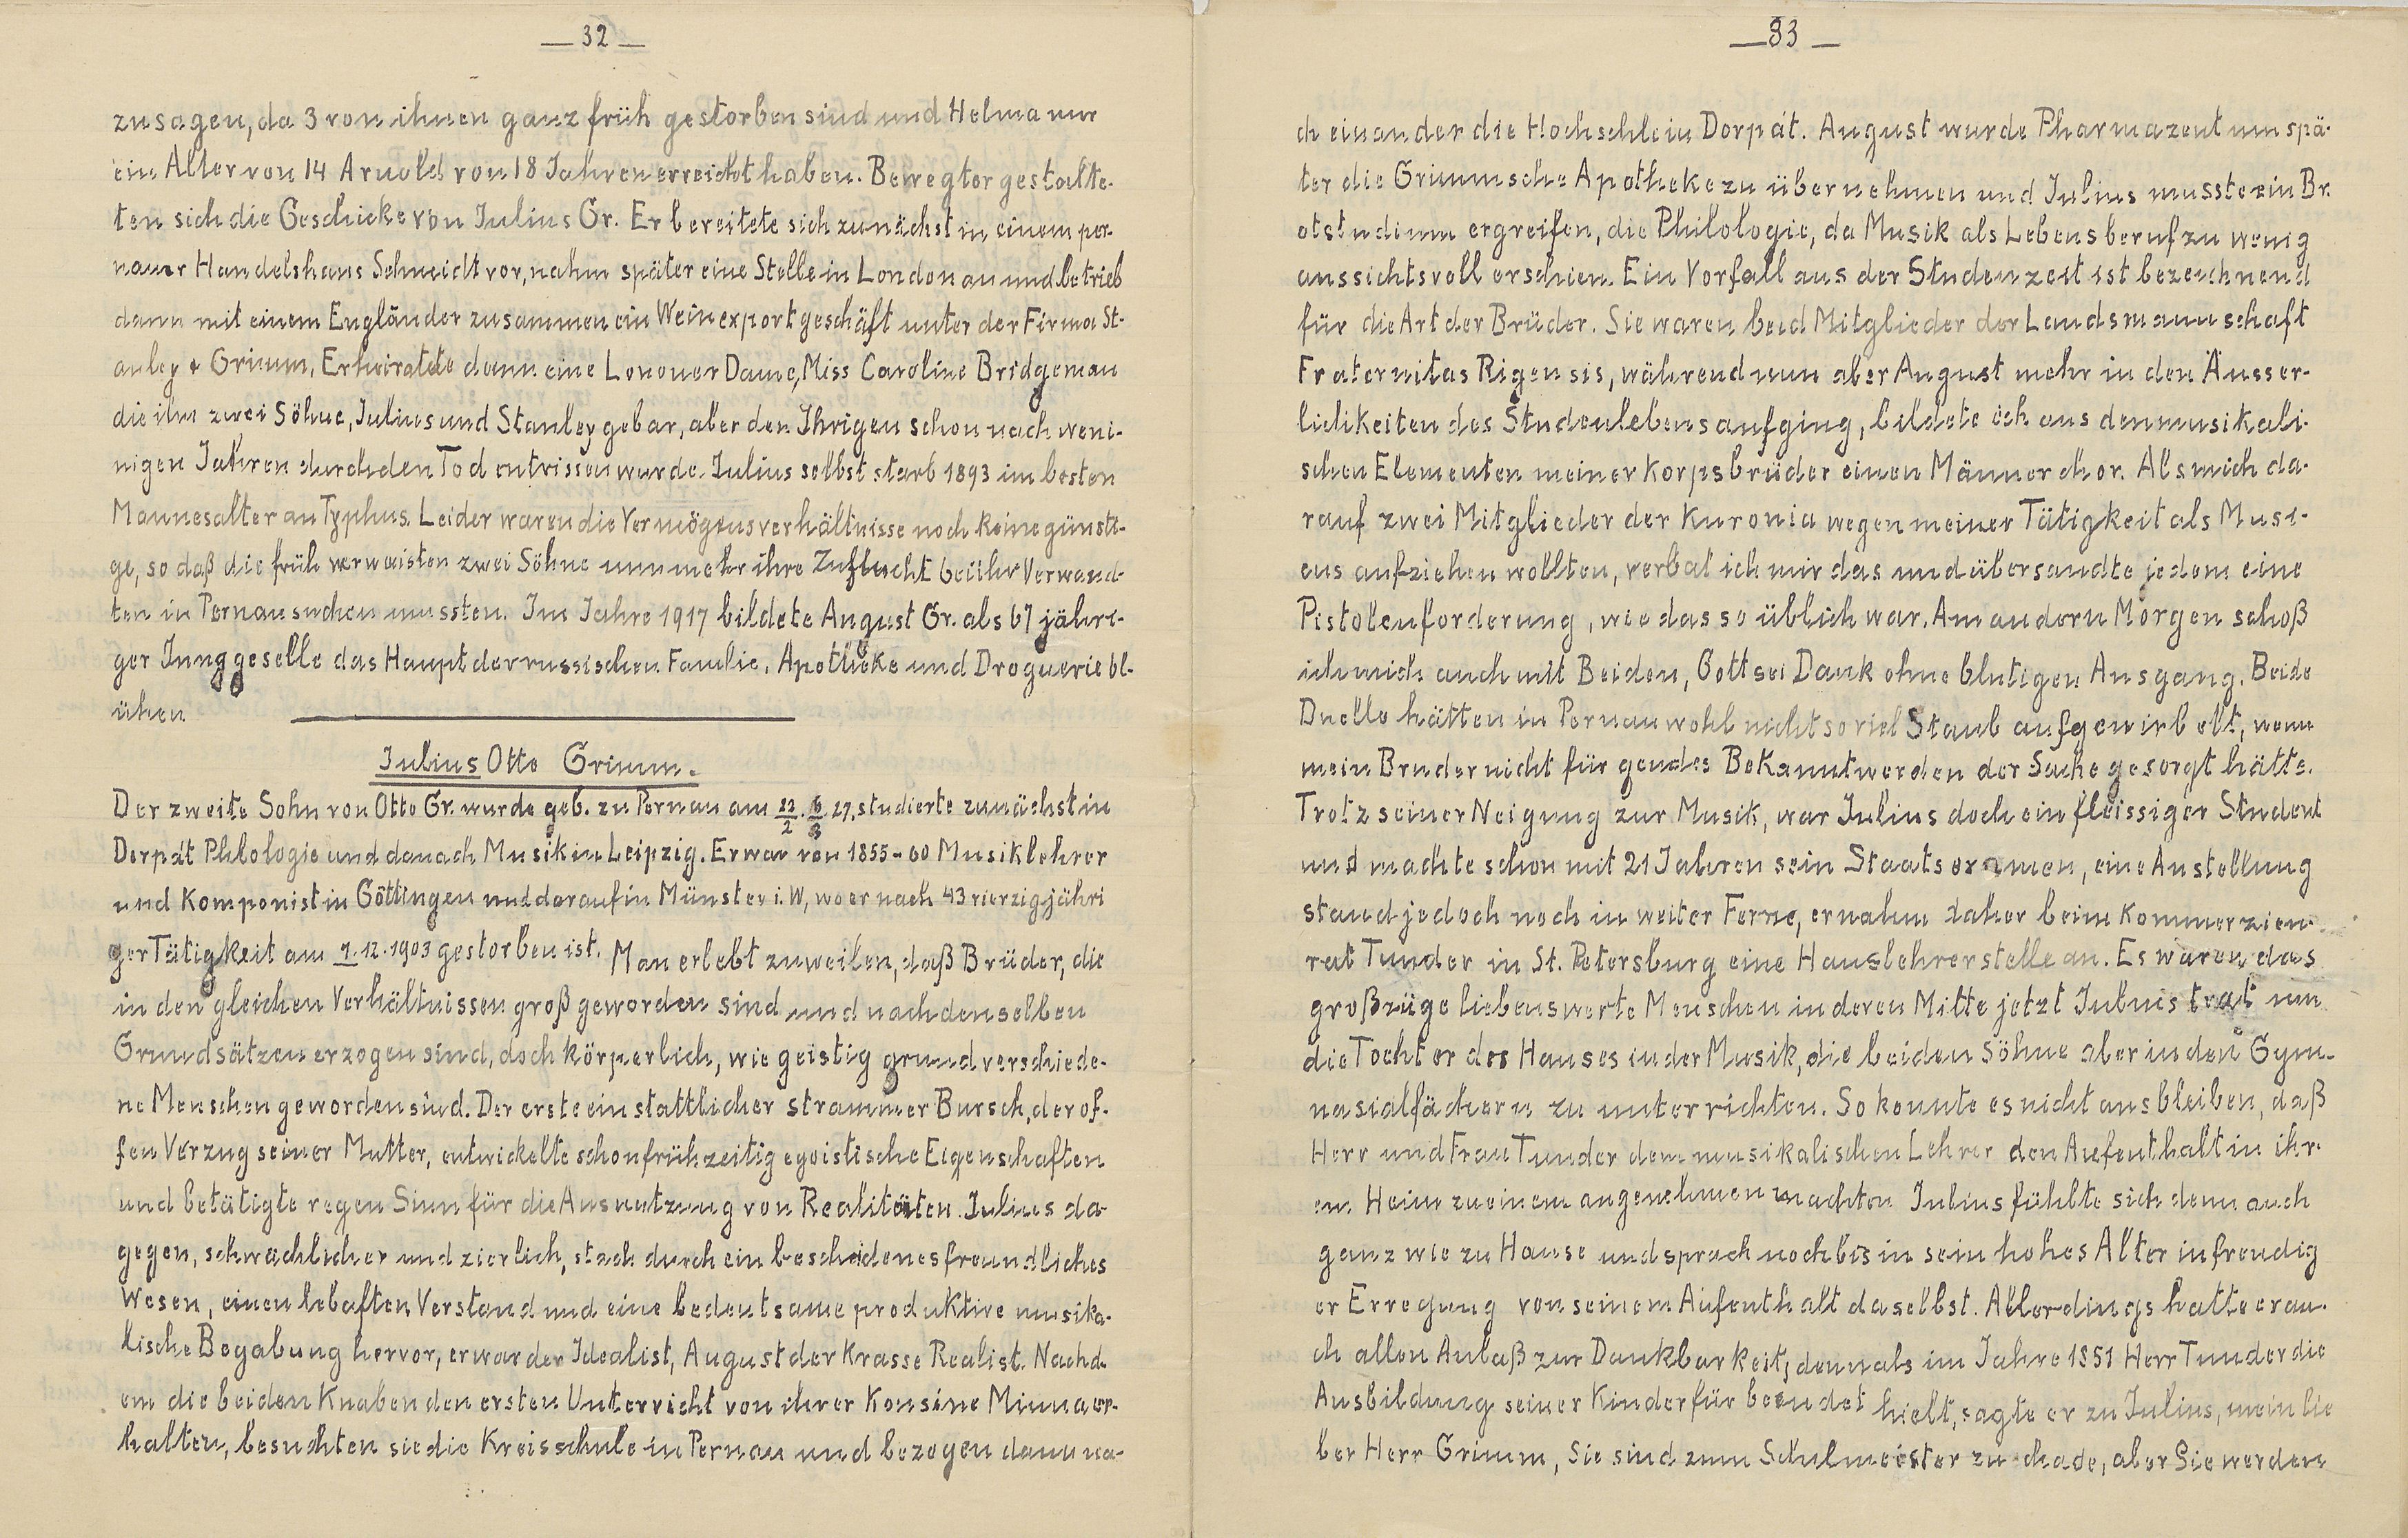 — 32 —
zusagen, da 3 von ihnen ganz früh gestorben sind und Helma nur
ein Alter von 14 Arnold von 18 Jahren erreicht haben. Bewegter gestalte-
ten sich die Geschicke von Julius Gr. Er bereitete sich zunächst in einem per-
nauer Handelshaus Schmidt vor, nahm später eine Stelle in London an und betrieb
dann mit einem Engländer zusammen ein Weinexportgeschäft unter der Firma St-
anley & Grimm. Er heiratete dann eine Lononer Dame, Miss Caroline Bridgeman
die ihm zwei Söhne, Julius und Stanley gebar, aber den Ihrigen schon nach weni-
nigen Jahren durch den Tod entrissen wurde. Julius selbst starb 1893 im besten
Mannesalter an Typhus. Leider waren die Vermögensverhältnisse noch keine günsti-
ge, so daß die früh verwaisten zwei Söhne nunmehr ihre Zuflucht bei ihr Verwand-
ten in Pernau suchen mussten. Im Jahre 1917 bildete August Gr. als 67 jähri-
ger Junggeselle das Haupt der russischen Familie. Apotheke und Droguerie bl-
ühen
Julius Otto Grimm.
Der zweite Sohn von Otto Gr. wurde geb. zu Pernau am 22/2. 6/3 27, studierte zunächst in
Dorpat Phlologie und danach Musik in Leipzig. Er war von 1855-60 Musiklehrer
und Komponist in Göttingen und darauf in Münster i. W, wo er nach 43 vierzigjähri
ger Tätigkeit am 7.12.1903 gestorben ist. Man erlebt zuweilen, daß Brüder, die
in den gleichen Verhältnissen groß geworden sind und nach denselben
Grundsätzen erzogen sind, doch körperlich, wie geistig grundverschiede-
ne Menschen geworden sind. Der erste ein stattlicher strammer Bursch, der of-
fen Verzug seiner Mutter, entwickelte schon frühzeitig egoistische Eigenschaften
und betätigte regen Sinn für die Ausnutzung von Realitäten. Julius da-
gegen, schwächlicher und zierlich, stach durch ein bescheidenes freundliches
Wesen, einen lebaften Verstand und eine bedeutsame produktive musika-
lische Begabung hervor, er war der Idealist, August der krasse Realist. Nachd-
em die beiden Knaben den ersten Unterricht von ihrer Kousine Minna er-
halten, besuchten sie die Kreisschule in Pernau und bezogen dann na-
— 33 —
ch einander die Hochschle in Dorpat. August wurde Pharmazeut um spä-
ter die Grimmsche Apotheke zu übernehmen und Julius musste ein Br.
otstudium ergreifen, die Philologie, da Musik als Lebensberuf zu wenig
aussichtsvoll erschien. Ein Vorfall aus der Studenzeit ist bezeichnend
für die Art der Brüder. Sie waren beid Mitglieder der Landsmannschaft
Fraternitas Rigensis, während nun aber August mehr in den Äusser-
lichkeiten des Studenlebens aufging, bildete ich aus den musikali-
schen Elementen meiner Korpsbrüder einen Männerchor. Als mich da-
rauf zwei Mitglieder der Kuronia wegen meiner Tätigkeit als Musi-
cus aufziehen wollten, verbat ich mir das und übersandte jedem eine
Pistolenforderung, wie das so üblich war. Am andern Morgen schoß
ich mich auch mit Beiden, Gott sei Dank ohne blutigen Ausgang. Beide
Duelle hätten in Pernau wohl nicht so viel Staub aufgewirbelt, wenn
mein Bruder nicht für gendes Bekanntwerden der Sache gesorgt hätte.
Trotz seiner Neigung zur Musik, war Julius doch ein fleissiger Student
und machte schon mit 21 Jahren sein Staatsexamen, eine Anstellung
stand jedoch noch in weiter Ferne, er nahm daher beim Kommerzien-
rat Tunder in St. Petersburg eine Hauslehrerstelle an. Es waren das
großzüge liebenswerte Menschen in deren Mitte jetzt Julius trat um
die Tochter des Hauses in der Musik, die beiden Söhne aber in den Gym-
nasialfächern zu unterrichten. So konnte es nicht ausbleiben, daß
Herr und Frau Tunder dem musikalischen Lehrer den Aufenthalt in ihr-
em Heim zu einem angenehmen machten Julius fühlte sich denn auch
ganz wie zu Hause und sprach noch bis in sein hohes Alter in freudig
er Erregung von seinem Aufenthalt daselbst. Allerdings hatte er au-
ch allen Anlaß zur Dankbarkeit, denn als im Jahre 1851 Herr Tunder die
Ausbildung seiner Kinder für beendet hielt, sagte er zu Julius, mein lie
ber Herr Grimm, Sie sind zum Schulmeister zu chade, aber Sie werden